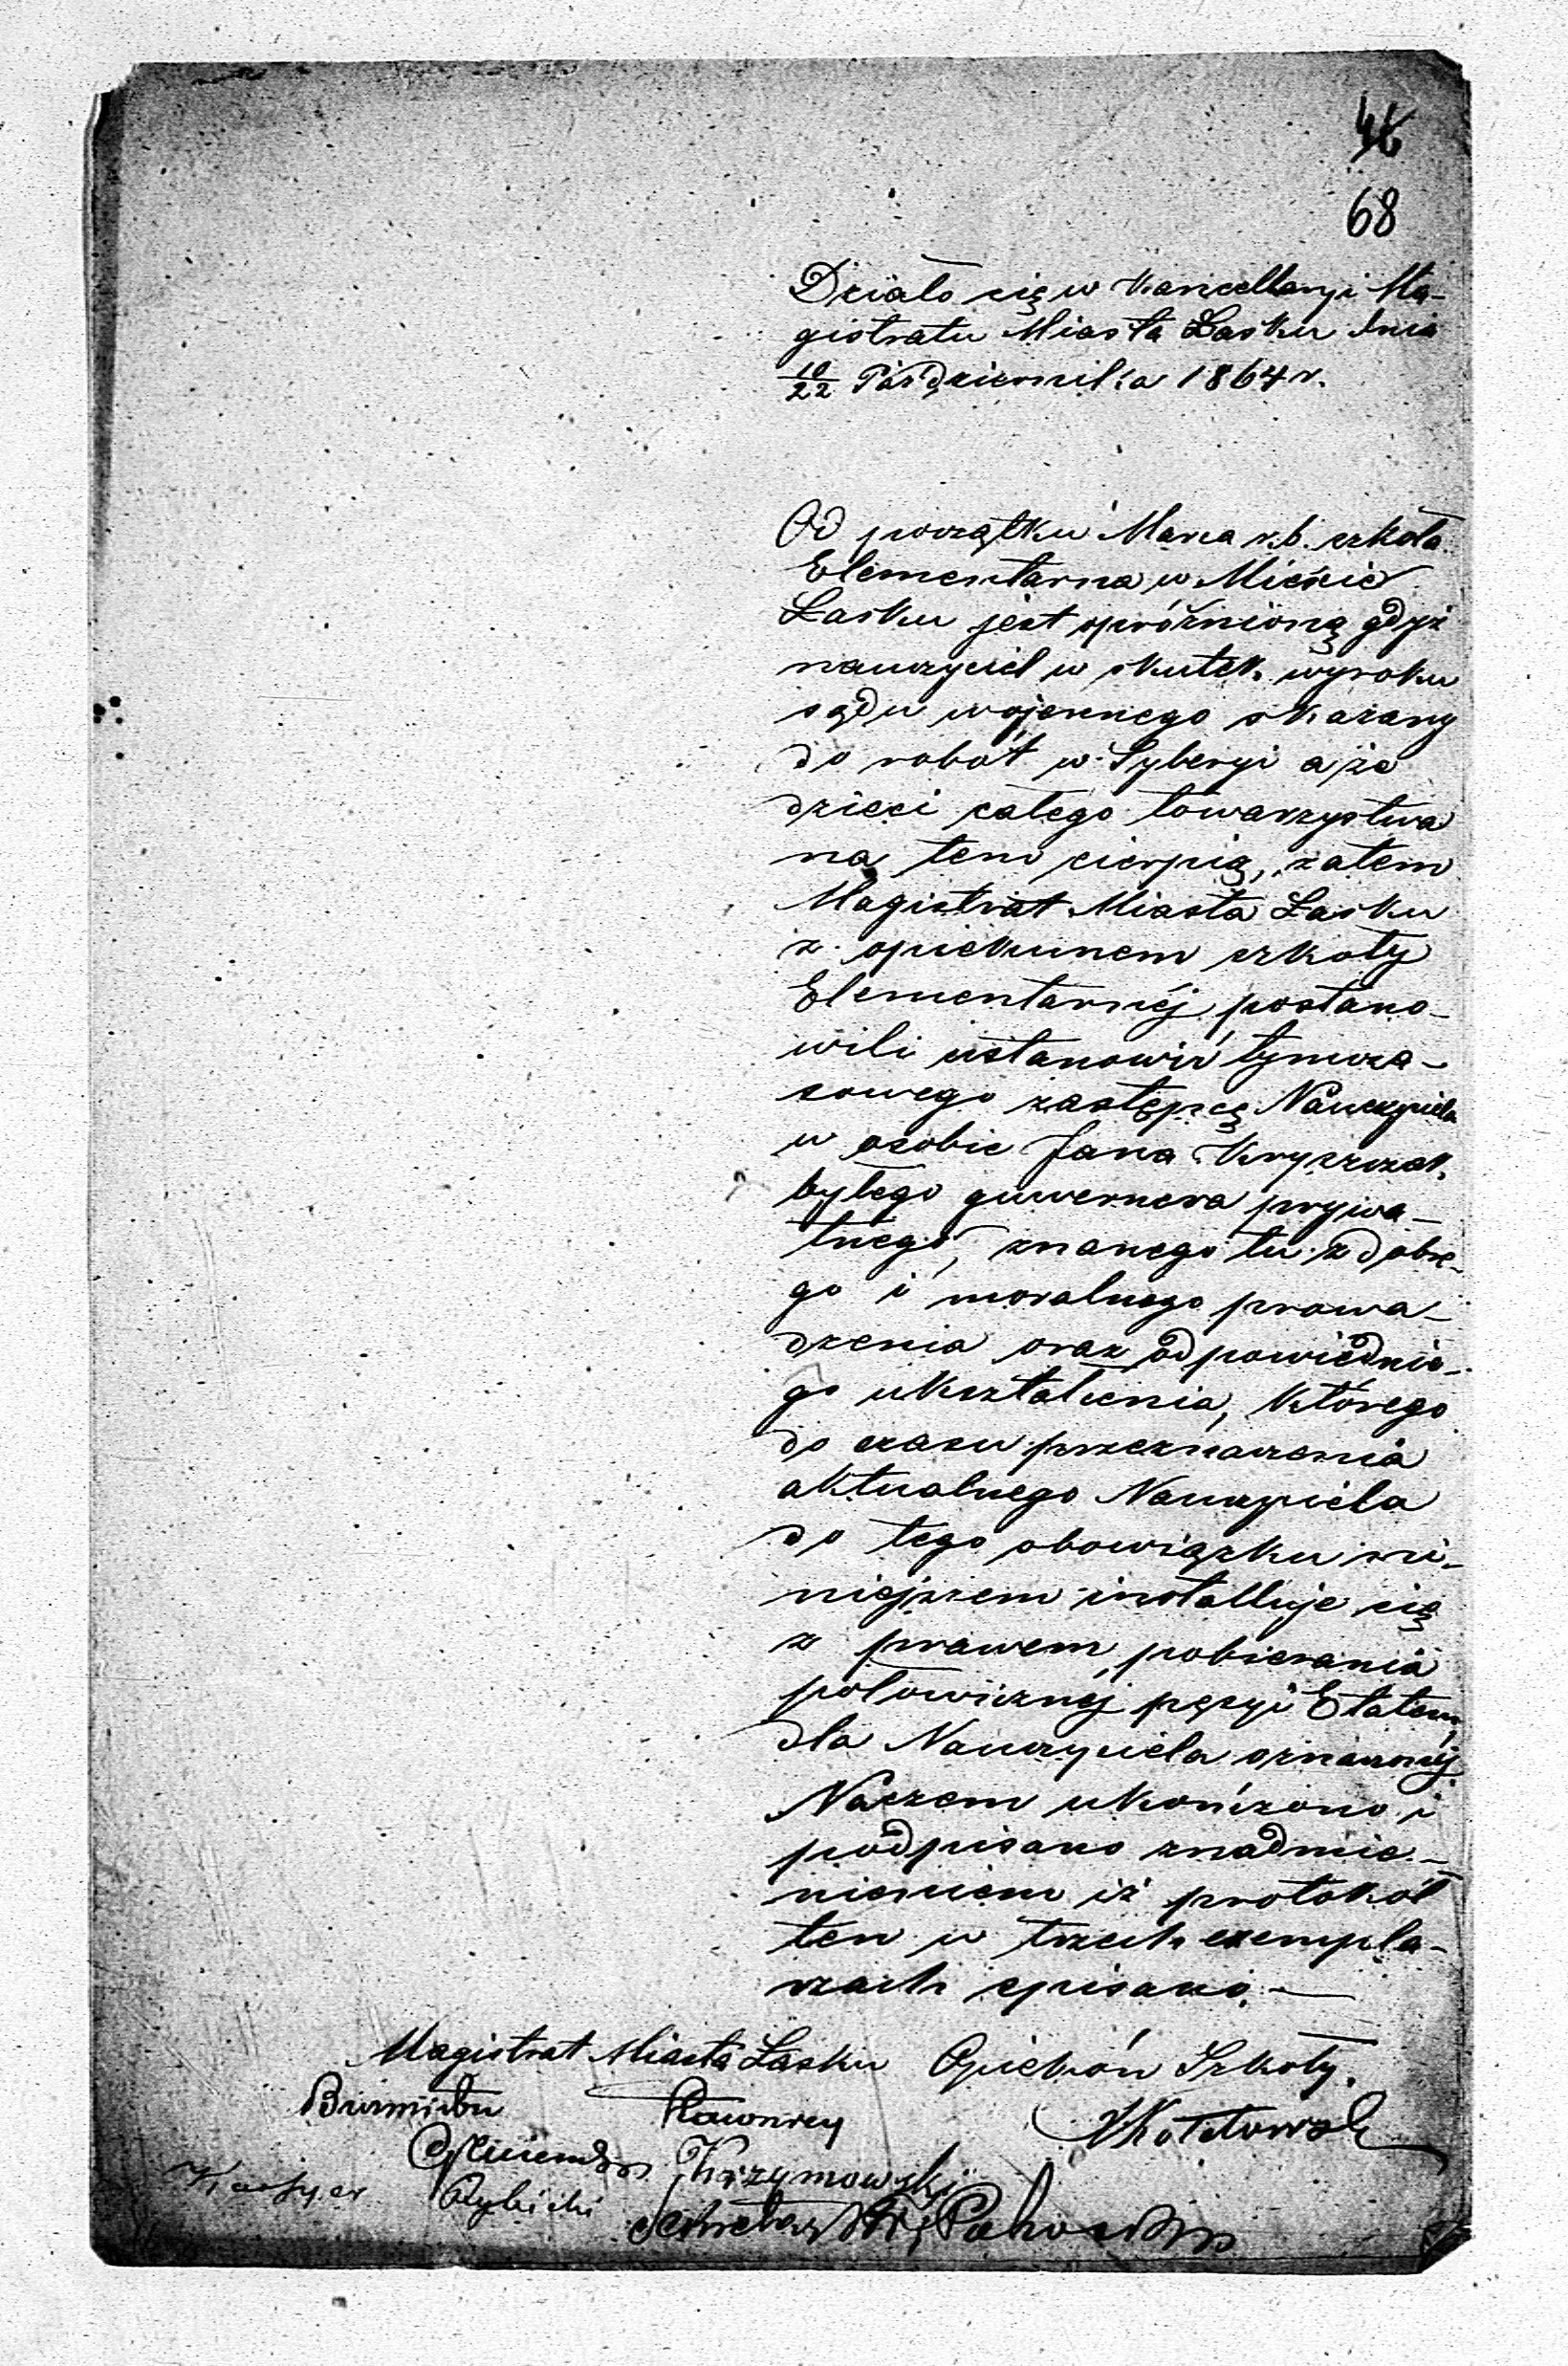 46
68
Działo się w Kancellaryi Ma-
gistratu Miasta Łasku dnia
10/22 Października 1864 r.
Od początku Marca r. b. szkoła
Elementarna w Mieście
Łasku jest opróżnioną gdyż
nauczyciel w skutek wyroku
sądu wojennego skazany
do robót w Syberyi a że
dzieci całego towarzystwa
na tem cierpią, zatem
Magistrat Miasta Łasku
z opiekunem szkoły
Elementarnéj postano-
wili ustanowić tymcza-
sowego zastępcę Nauczyciela
w osobie Jana Kryszczak
byłego guwernera prywa-
tnego, znanego tu z dobre-
go i moralnego prowa-
dzenia oraz odpowiednie-
go ukształcenia, którego
do czasu przeznaczenia
aktualnego Nauczyciela
do tego obowiązku ni-
niejszem installuje się
z prawem pobierania
połowicznéj pęsyi Etatem
dla Nauczyciela oznaczonéj
Na czem ukończono i
podpisano z nadmie-
nieniem iż protokół
ten w trzech exempla-
rzach spisano. —
Magistrat Miasta Łasku Opiekón Szkoły.
Burmistrz Ławnicy
Krzymowski
Kacper Rybicki
Sekretarz